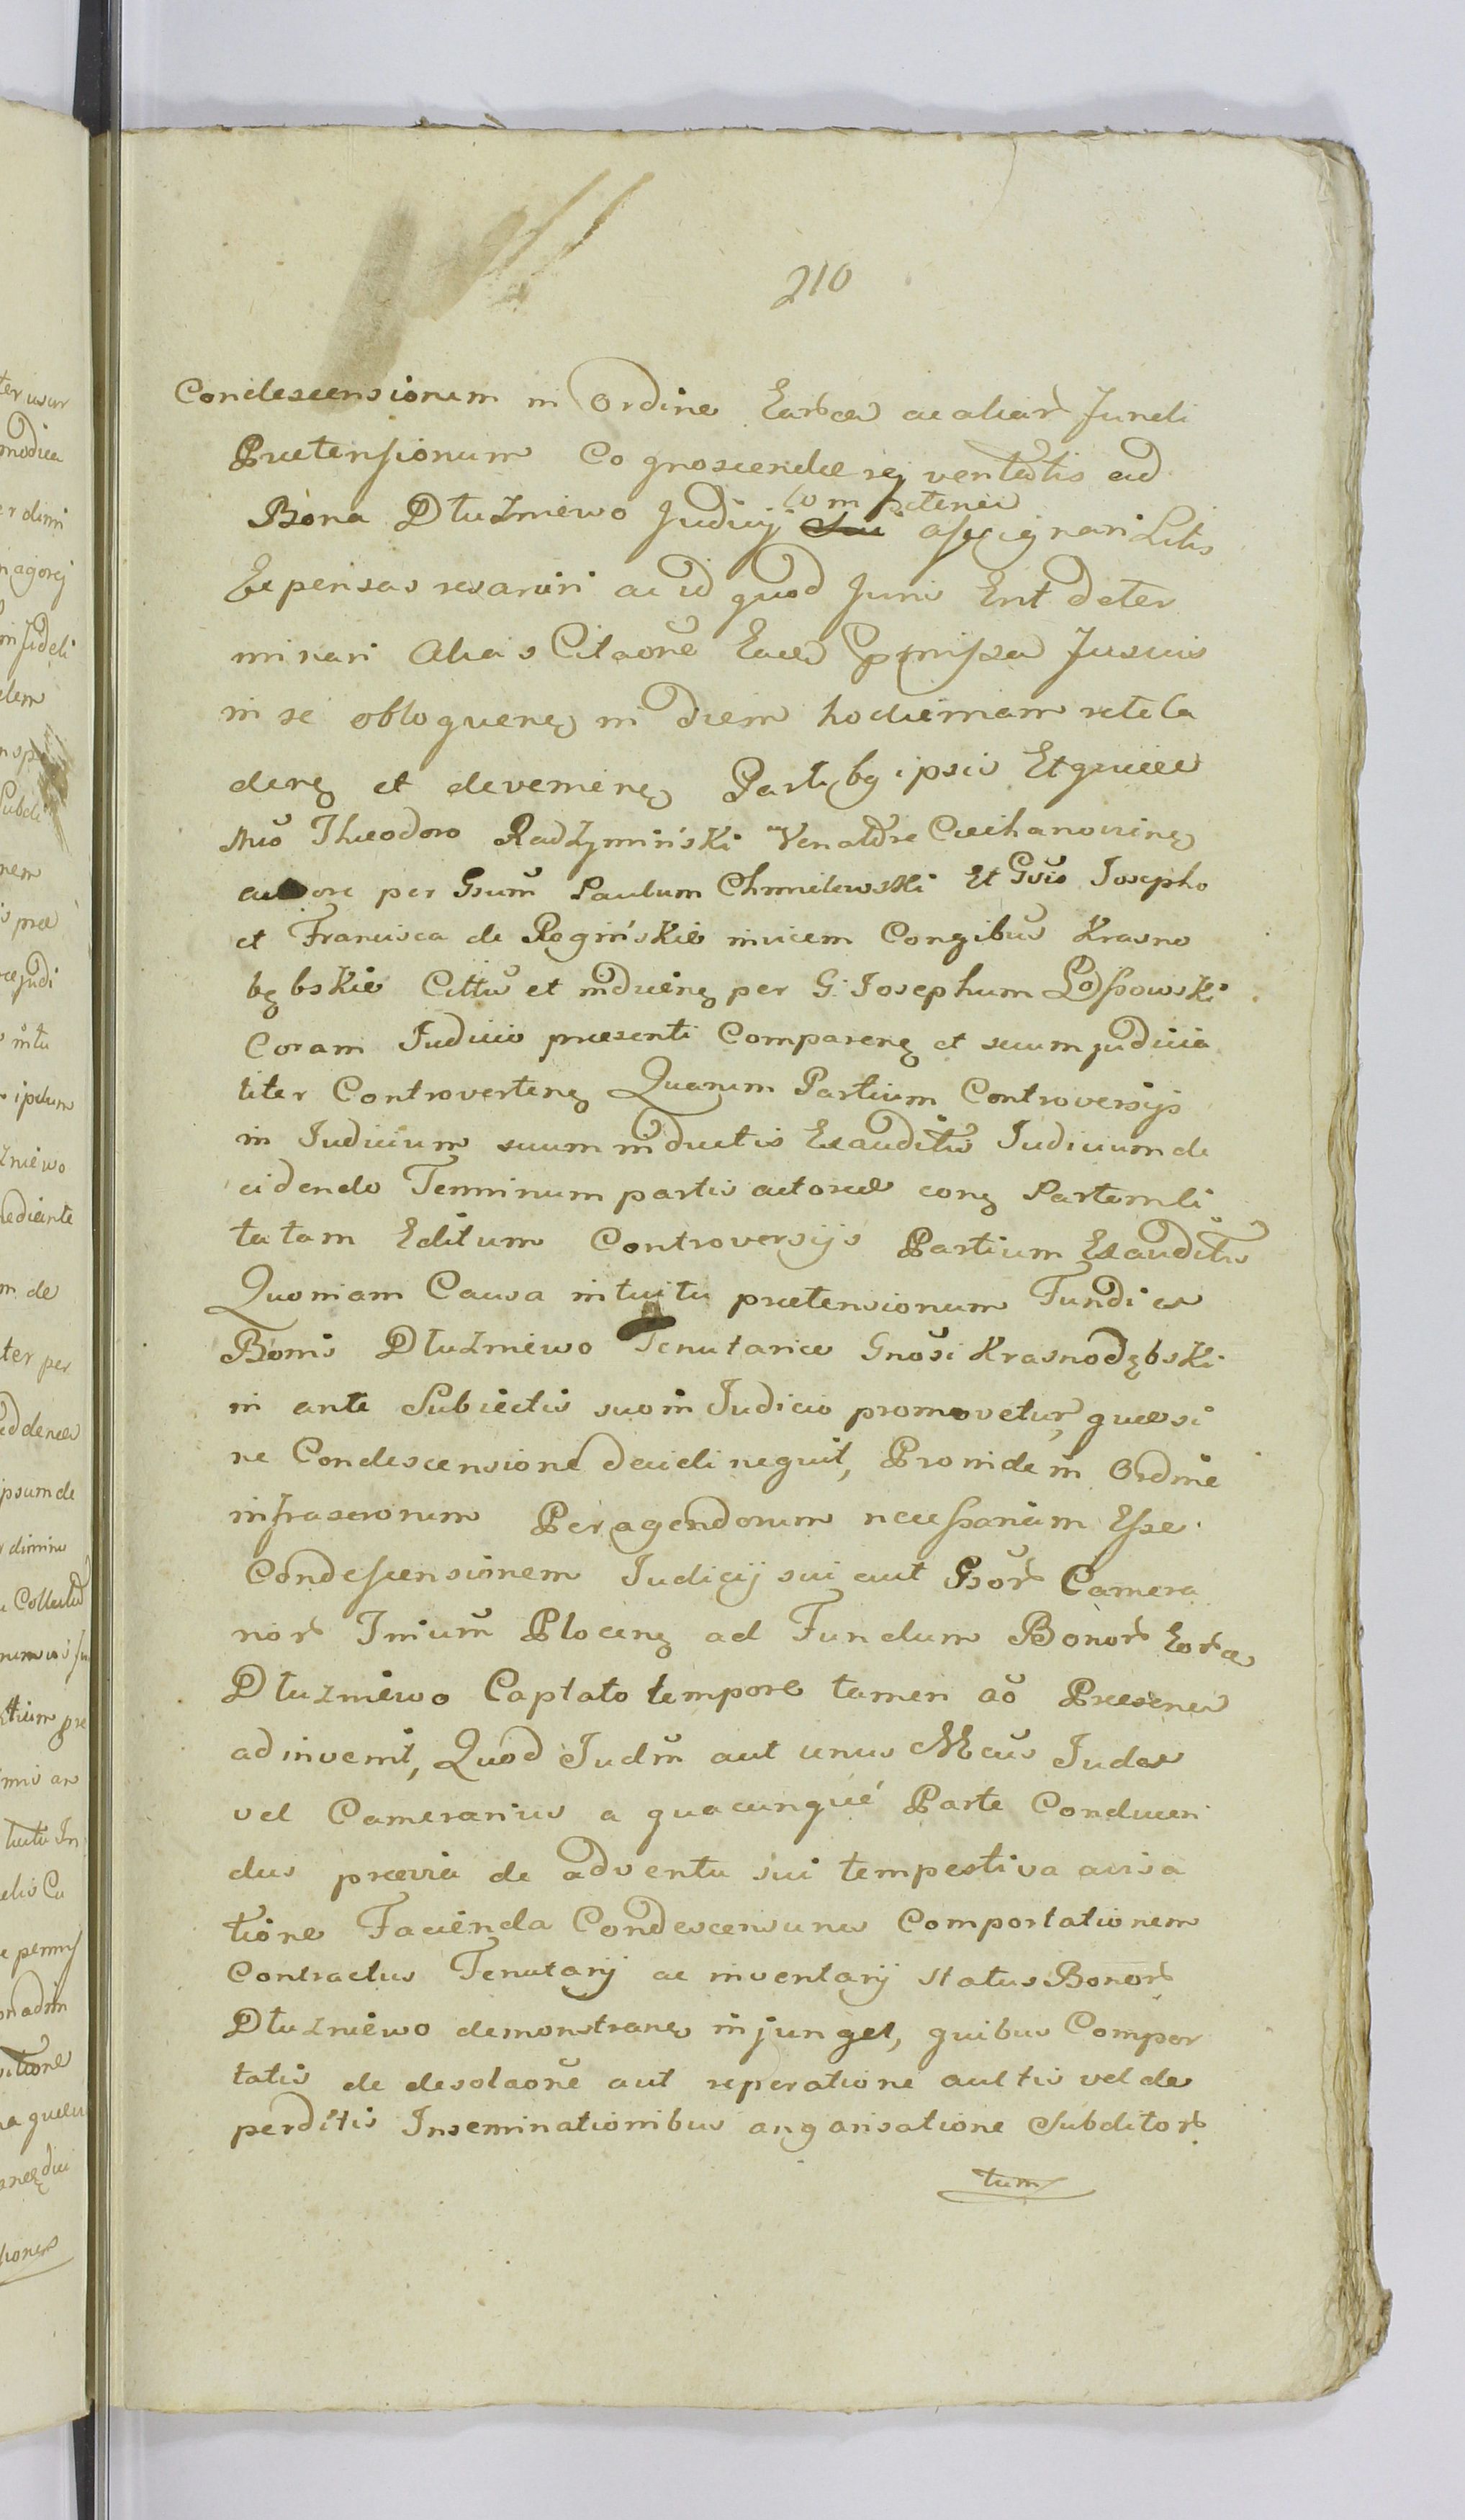 210
Condescensionem in Ordine Earca ac aliar Fundi
Prætensionum Cognoscendæ rej veritatis ad
Bona Dłużniewo Judicij Competenr
assignari Litis
Expensas resarciri ac id quod Juris Erit deter
minari Alias Citaone Eaed Præmissa Jusvis
in se obloquenę in diem hodiernam
denę et devenienę Partibg ipsis Et quidem
Theodoro Radzymiński Venatore Ciechanovienę
actore per Gsum Paulum Chmielewski Et Gsis Josepho
et Francisca de Rogińskie invicem Congibus Krasno
bębskie Cittis et inducienę per G: Josephum Lossowski
Coram Judicio præsenti Comparenę et suum judicia
liter Controvertenę Quarum Partium Controversijs
in Judicium suum inductis Exauditis Judicium de
cidendo Terminum partis actoreæ conę Partem li
tatam Editum Controversijs Partium Exauditis
Quoniam Causa intuitu prætensionum Fundi ex
Bonis Dłużniewo Tenutariæ Gnosi Krasnodębski
in ante Subiectis suo in Judicio promovetur, quæ si
ne Condescensione decidi nequit, Proinde in Ordine
infrascrorum Peragendorum necessarium Esse
Condescensionem Judicij sui aut Gsor Camera
rior Trium Plocenę ad Fundum Bonor Eorca
Dłużniewo Captato tempore tamen ao Præsenr
adinvenit, Quod Judm aut unus Mcus Judex
vel Camerarius a quacunque Parte Conducen
dus prævia de adventu sui tempestiva avisa
tione Facienda Condescensurus Comportationem
Contractus Tenutarij ac inventarij status Bonor
Dłużniewo demonstranę injunget, quibus Compor
tatis de desolaone aut reperatione auctis vel de
perditis Inseminationibus angarisatione Subditor
tum